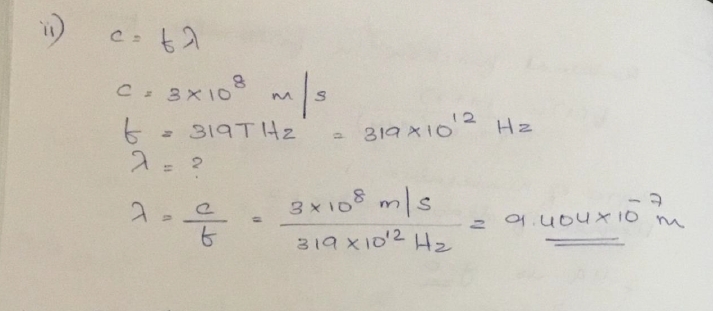 ii) c = fλ
c = 3×10⁸ m/s
f = 319THz = 319×10¹² Hz
λ = ?
λ = c/f = 3×10⁸ m/s / 319×10¹² Hz = 9.404×10⁻⁷ m